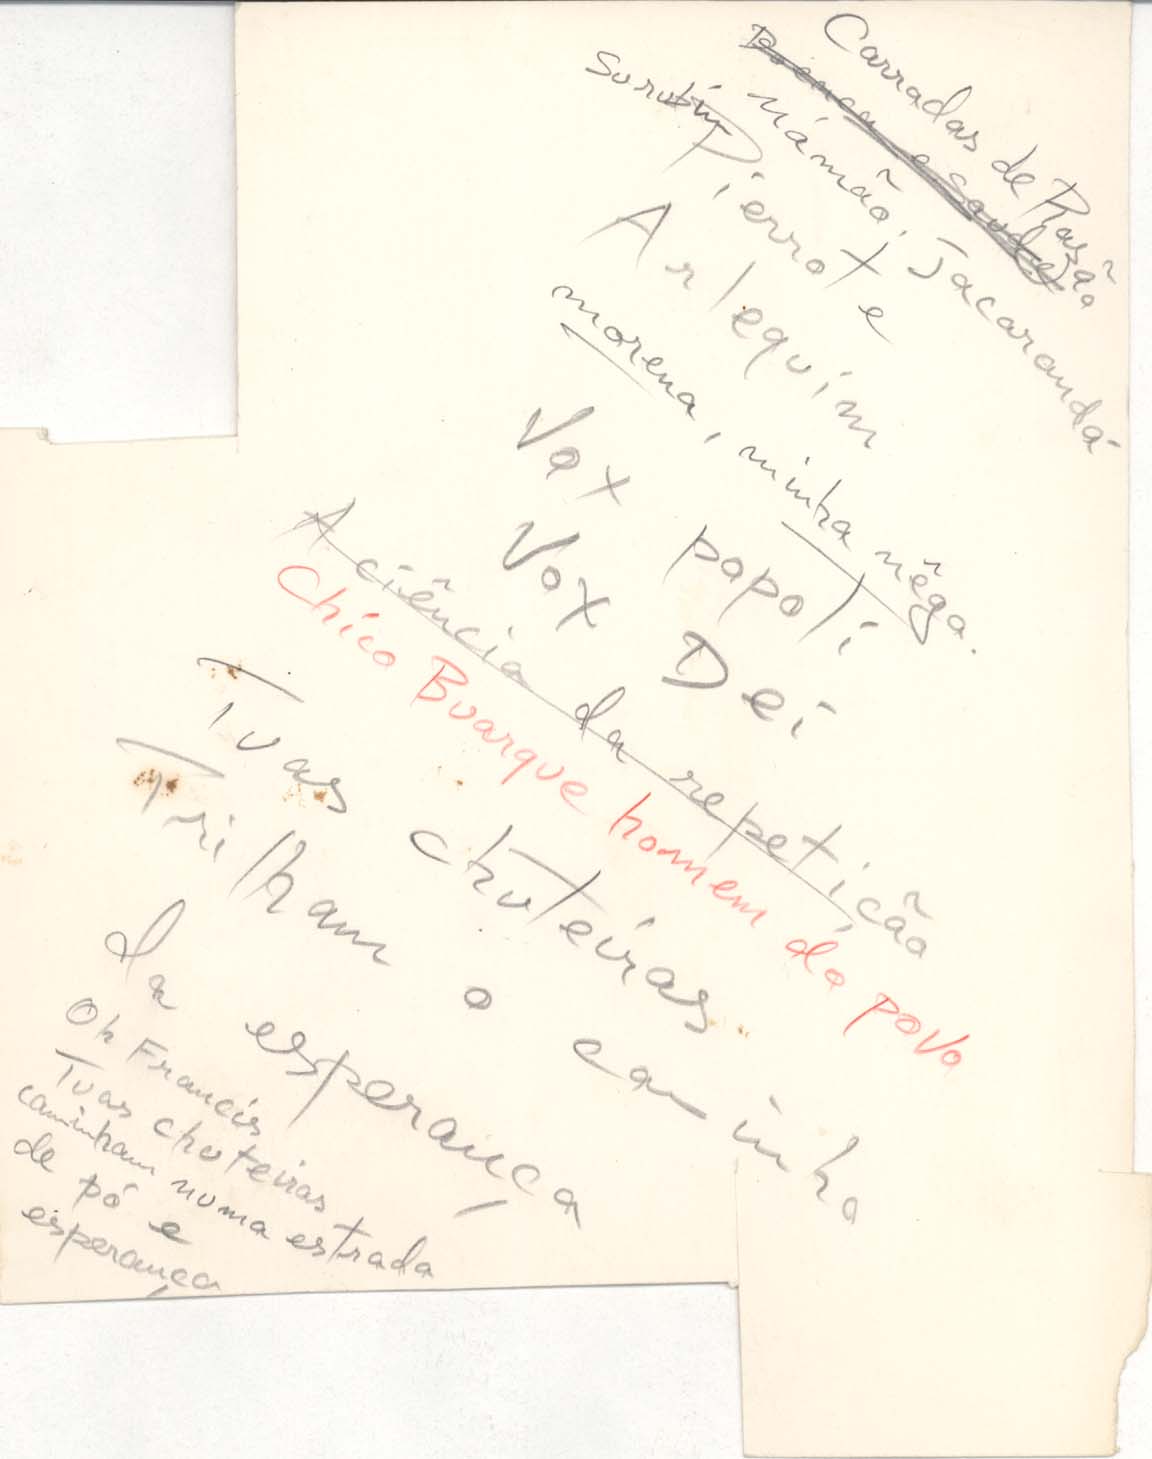 Carradas de Razão
Poeira e saudades
mámão, Jacarandá
Surubim
Pierrot e
Arlequim
morena, minha nêga.
Vox popoli
Vox Dei
A ciência da repetição
Chico Buarque homem do povo
Tuas chuteiras
Trilham o caminho
da esperança
Oh Francis
Tuas chuteiras
caminham numa estrada
de pó e
esperança